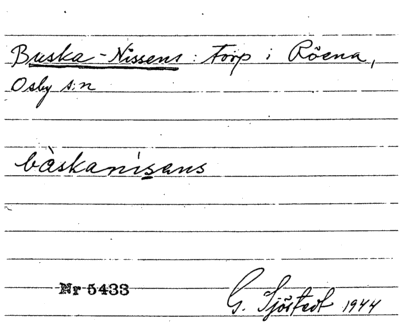 Buska-Nissens: torp i Röena,
Osby s:n
bàskanisans
Nr 5433
G. Sjöstedt 1944